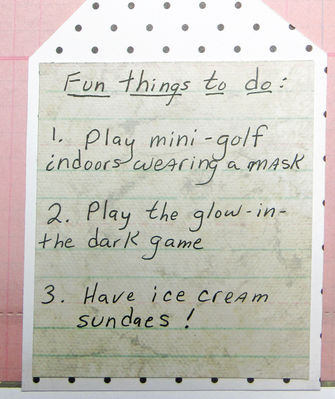 Fun things to do:
1. Play mini-golf
indoors wearing a mask
2. Play the glow-in-
the dark game
3. Have ice cream
sundaes!